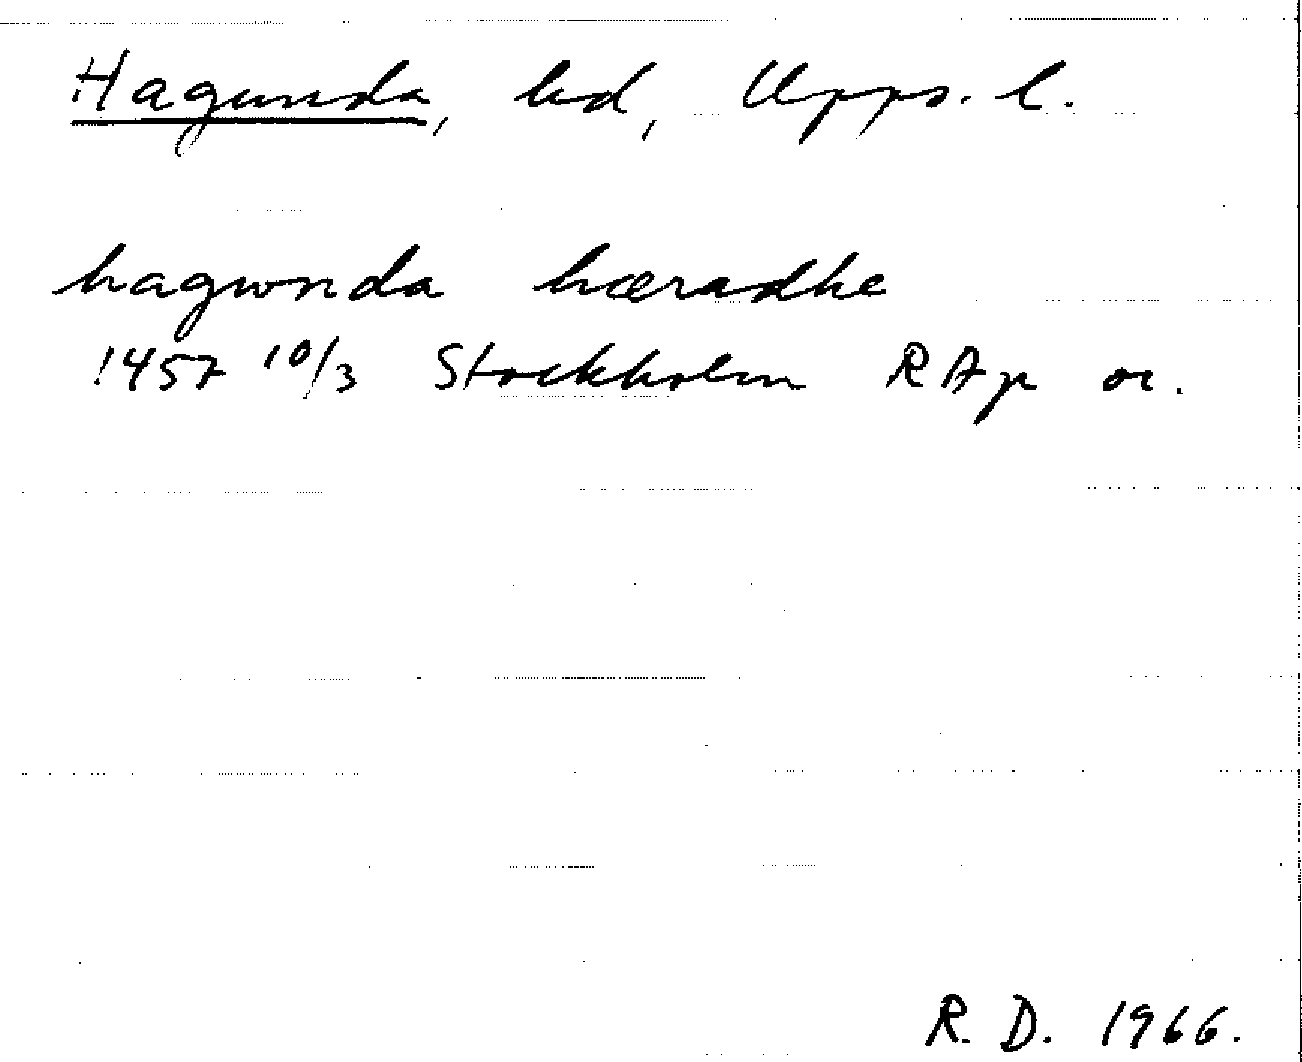 Hagunda, hd, Upps. l.
hagwnda hæradhe
1457 10/3 Stockholm RAp or.
R. D. 1966.